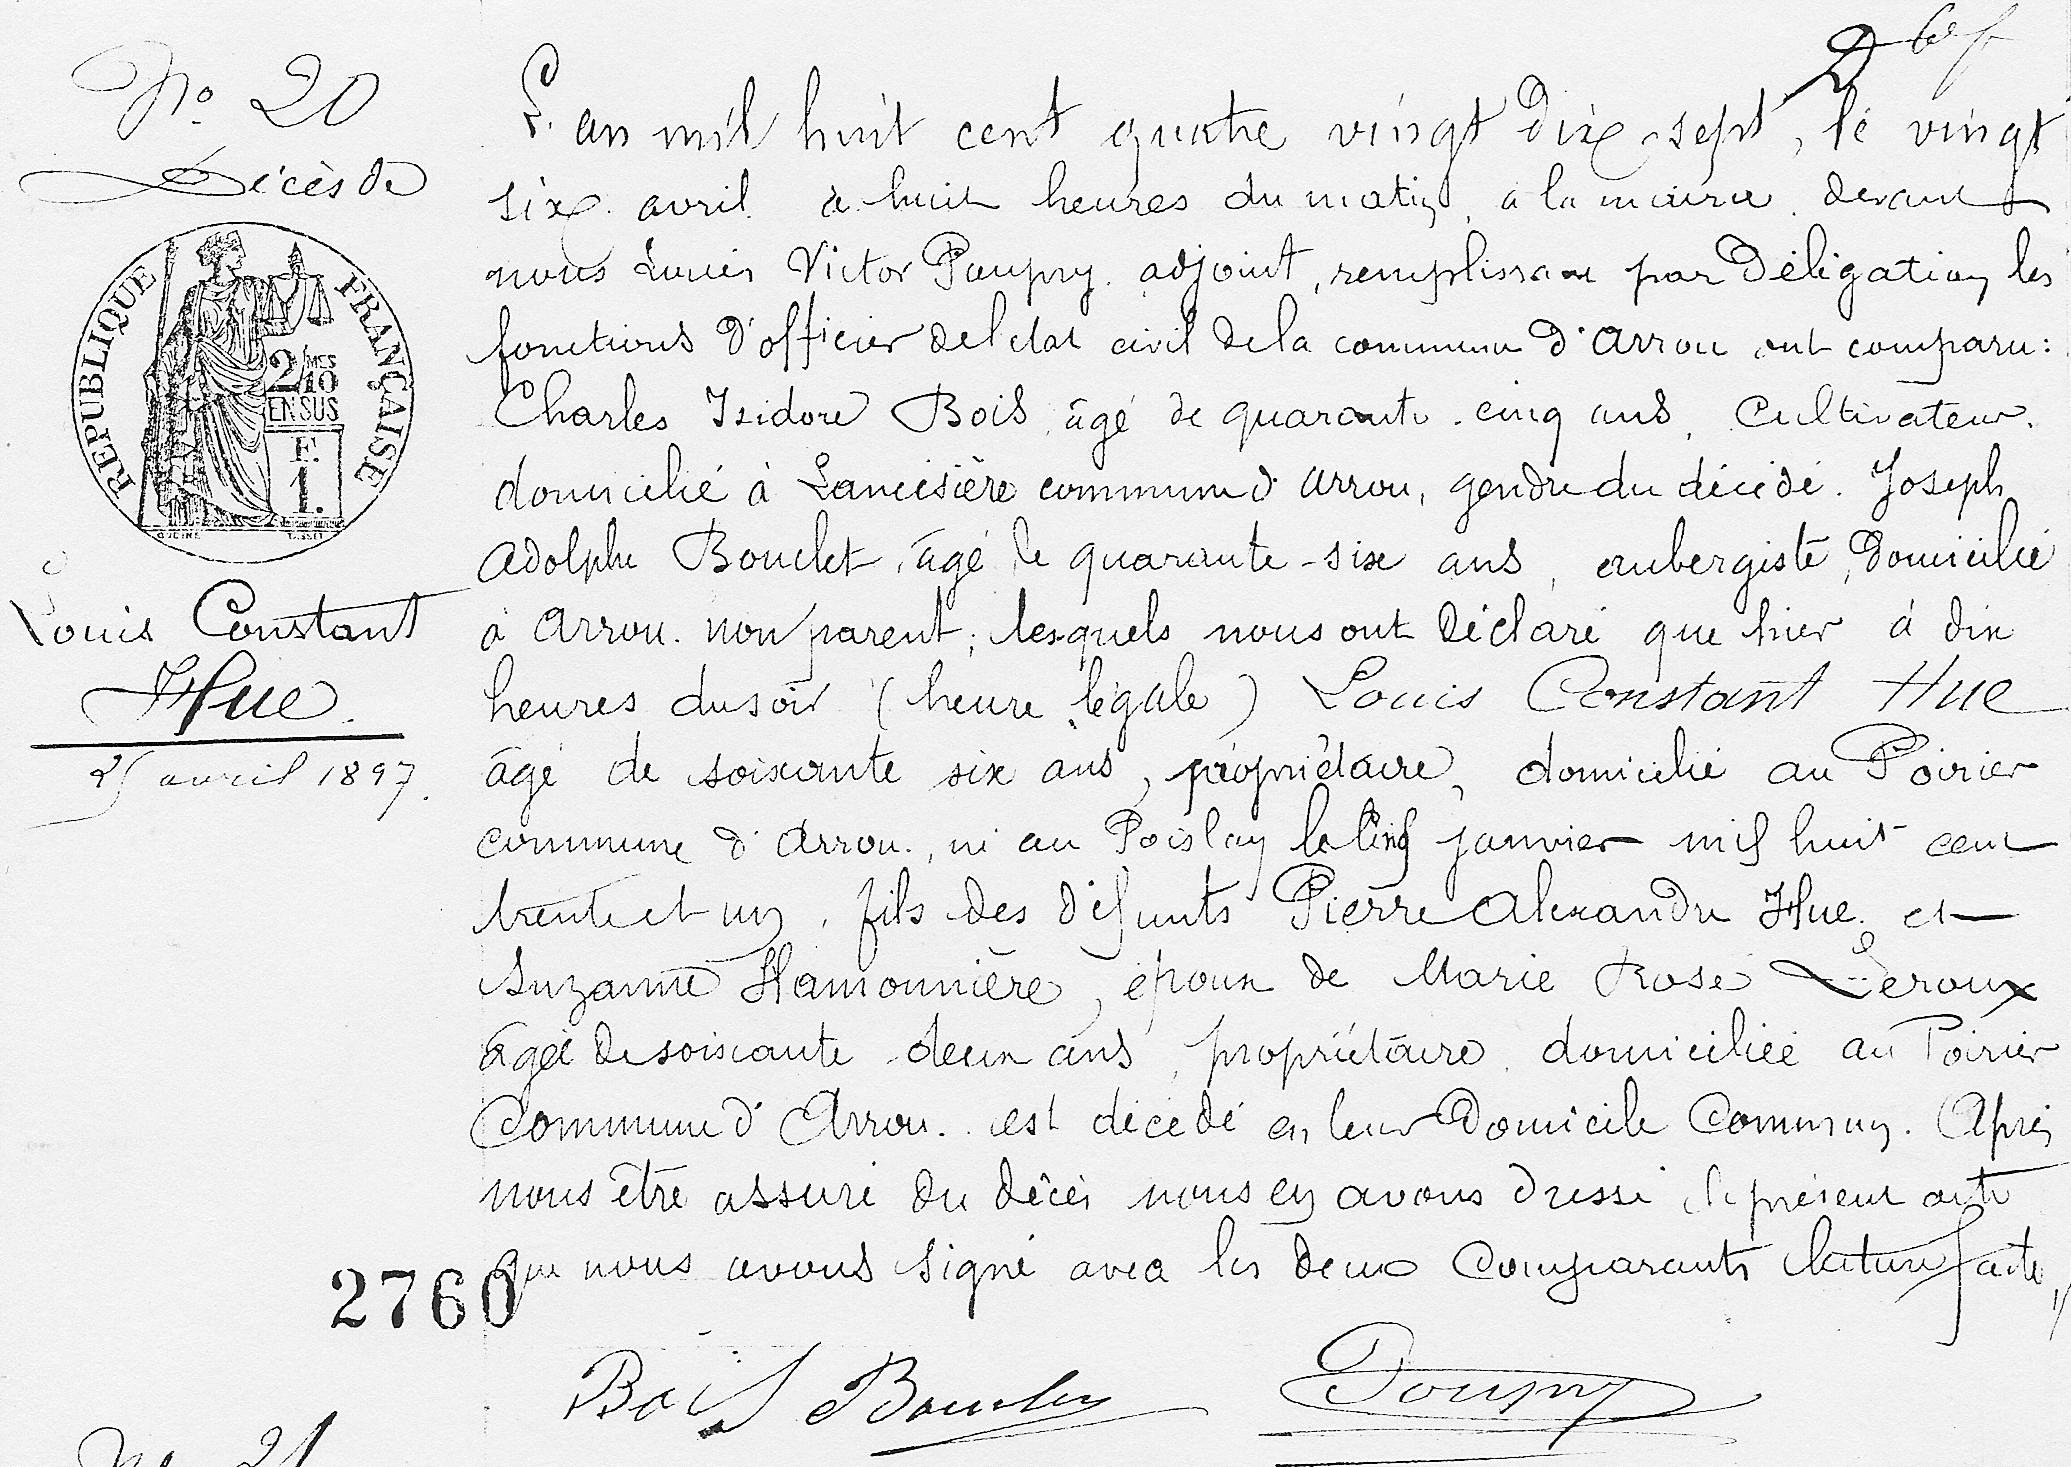 N° 20
Décès de
REPUBLIQUE FRANÇAISE
2/10 MES
EN SUS
F.
1.
Louis Constant
Hue.
25 avril 1897.
L'an mil huit cent quatre vingt dix-sept, le vingt
six avril à huit heures du matin, à la mairie devant
nous Victor Poupry adjoint, remplissant par Déligation les
fonctions d'officier de l'état civil de la commune d'Arrou ont comparu:
Charles Isidore Bois, âgé de quarante-cinq ans, Cultivateur,
domicilié à commune d'Arrou, gendre du décédé. Joseph
Adolphe Bouclet, âgé de quarante-six ans, aubergiste, domicilié
à Arrou non parent; lesquels nous ont déclaré que hier à dix
heures du soir (heure légale) Louis Constant Hue
âgé de soixante six ans, propriétaire, domicilié au Poirier
commune d'Arrou, né au Poislay le cinq janvier mil huit cent
trente et un, fils des défunts Pierre Alexandre Hue et
Suzanne Hamonnière, époux de Marie Rose Leroux
âgée de soixante deux ans, propriétaire, domiciliée au Poirier
Commune d'Arrou. est décédé en leur Domicile Commun. Après
nous être assuré du décès nous en avons dressé le présent acte
que nous avons signé avec les deux Comparants lecture faite
2760
Bois Bouclet Poupry
N° 21